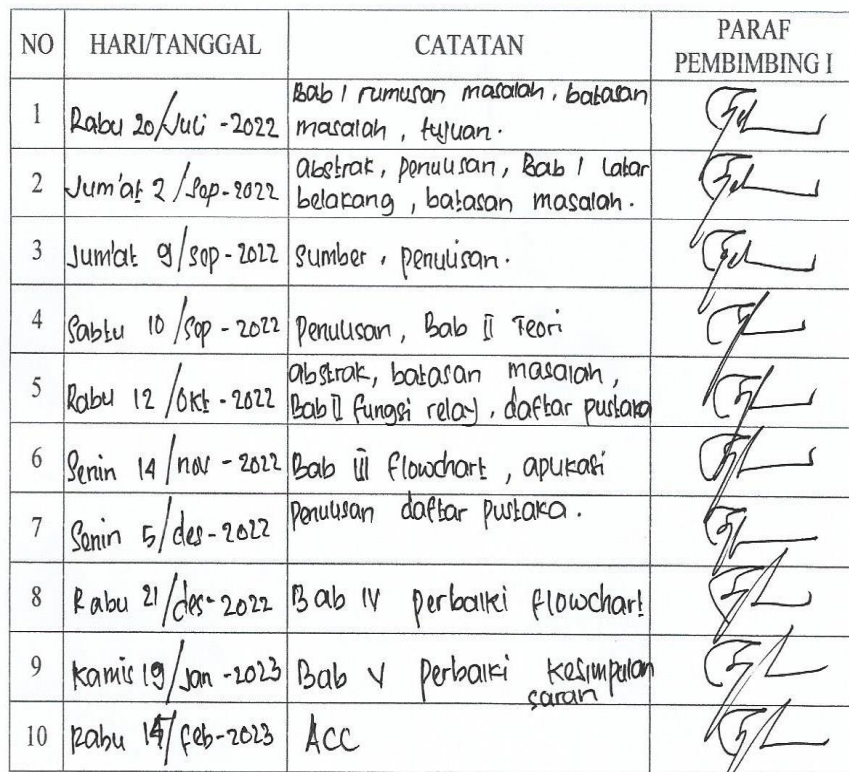 NO HARI/TANGGAL CATATAN PARAF PEMBIMBING I
1 Rabu 20/Juli - 2022 Bab I rumusan masalah, batasan
masalah, tujuan.
2 Jum'at 2/Sep - 2022 abstrak, penulisan, Bab I latar
belakang, batasan masalah.
3 Jum'at 9/sep - 2022 Sumber, penulisan.
4 Sabtu 10/Sep - 2022 Penulisan, Bab II Teori
5 Rabu 12/Okt - 2022 abstrak, batasan masalah,
Bab II fungsi relay, daftar pustaka
6 Senin 14/nov - 2022 Bab III flowchart, aplikasi
7 Senin 5/des - 2022 Penulisan daftar pustaka.
8 Rabu 21/des - 2022 Bab IV perbaiki flowchart
9 Kamis 19/Jan - 2023 Bab V perbaiki kesimpulan
saran
10 Rabu /feb - 2023 ACC